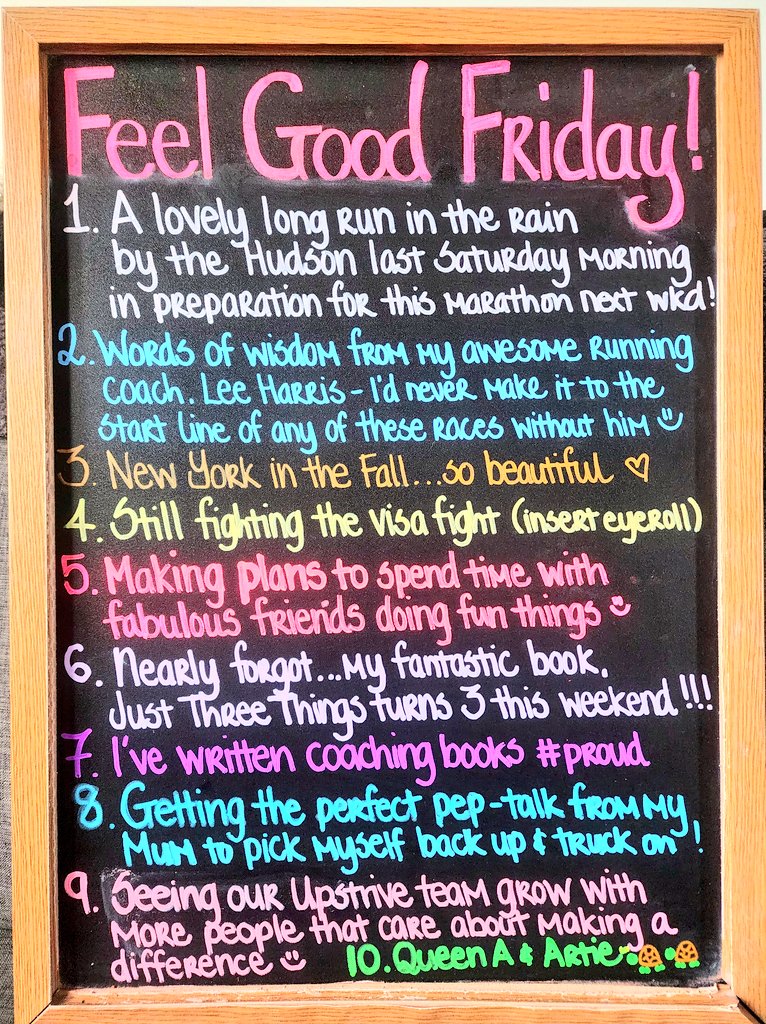 Feel Good Friday!
1. A lovely long run in the rain
by the Hudson last Saturday morning
in preparation for this marathon next wkd!
2. Words of wisdom from my awesome running
coach. Lee Harris - I'd never make it to the
start line of any of these races without him
3. New York in the Fall...so beautiful ♡
4. Still fighting the visa fight (insert eyeroll)
5. Making plans to spend time with
fabulous friends doing fun things
6. Nearly forgot...my fantastic book,
Just Three Things turns 3 this weekend!!!
7. I've written coaching books #proud
8. Getting the perfect pep-talk from my
Mum to pick myself back up & truck on!
9. Seeing our Upstrive team grow with
more people that care about making a
difference
10. Queen A & Artie